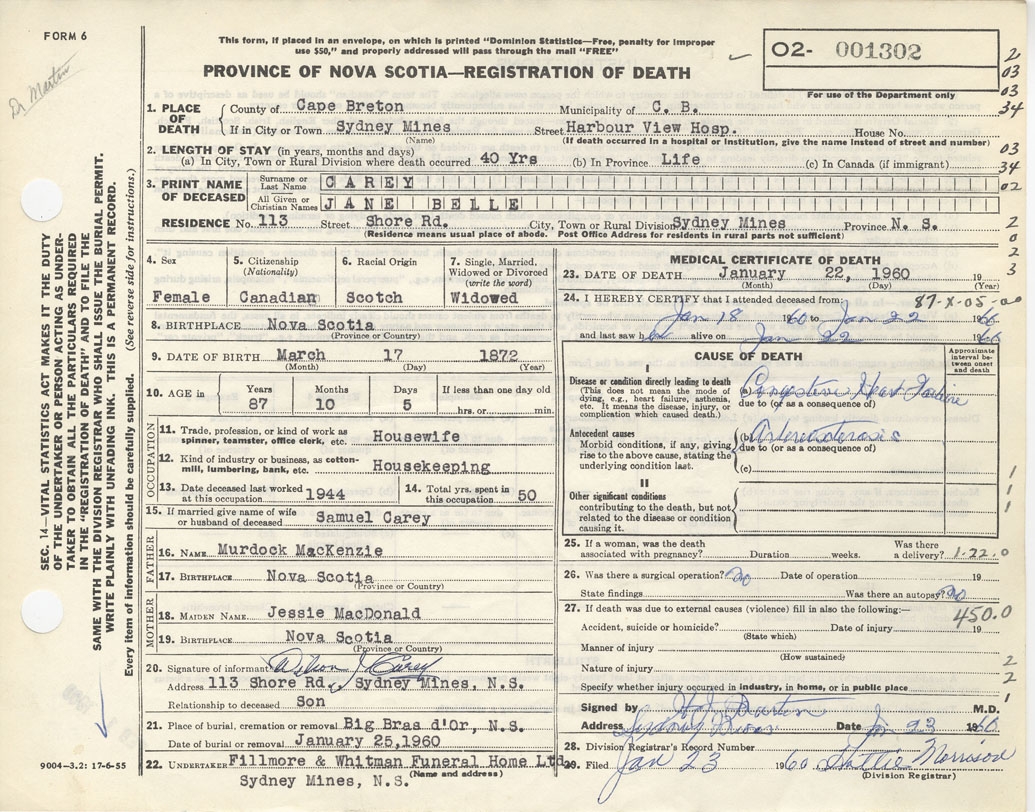 FORM 6
This form, if placed in an envelope, on which is printed "Dominion Statistics—Free, penalty for improper
use $50," and properly addressed will pass through the mail "FREE"
O2- 001302
For use of the Department only
PROVINCE OF NOVA SCOTIA—REGISTRATION OF DEATH
Dr Martin
SEC. 14—VITAL STATISTICS ACT MAKES IT THE DUTY
OF THE UNDERTAKER OR PERSON ACTING AS UNDER-
TAKER TO OBTAIN ALL THE PARTICULARS REQUIRED
IN THE "REGISTRATION OF DEATH" AND TO FILE THE
SAME WITH THE DIVISION REGISTRAR WHO SHALL ISSUE THE BURIAL PERMIT.
WRITE PLAINLY WITH UNFADING INK. THIS IS A PERMANENT RECORD.
Every item of information should be carefully supplied. (See reverse side for instructions.)
1. PLACE OF DEATH County of Cape Breton Municipality of C. B.
If in City or Town Sydney Mines Street Harbour View Hosp. House No.
(Name) (If death occurred in a hospital or institution, give the name instead of street and number)
2. LENGTH OF STAY (in years, months and days)
(a) In City, Town or Rural Division where death occurred 40 Yrs (b) In Province Life (c) In Canada (if immigrant)
3. PRINT NAME OF DECEASED Surname or Last Name CAREY
All Given or Christian Names JANE BELLE
RESIDENCE No. 113 Street Shore Rd. City, Town or Rural Division Sydney Mines Province N. S.
(Residence means usual place of abode. Post Office Address for residents in rural parts not sufficient)
2
03
03
34
03
34
02
2
0
2
3
4. Sex 5. Citizenship (Nationality) 6. Racial Origin 7. Single, Married, Widowed or Divorced (write the word)
Female Canadian Scotch Widowed
8. BIRTHPLACE Nova Scotia
(Province or Country)
9. DATE OF BIRTH March 17 1872
(Month) (Day) (Year)
10. AGE in Years Months Days If less than one day old
87 10 5 hrs. or min.
OCCUPATION
11. Trade, profession, or kind of work as spinner, teamster, office clerk, etc. Housewife
12. Kind of industry or business, as cotton-mill, lumbering, bank, etc. Housekeeping
13. Date deceased last worked at this occupation 1944 14. Total yrs. spent in this occupation 50
15. If married give name of wife or husband of deceased Samuel Carey
FATHER
16. NAME Murdock MacKenzie
17. BIRTHPLACE Nova Scotia
(Province or Country)
MOTHER
18. MAIDEN NAME Jessie MacDonald
19. BIRTHPLACE Nova Scotia
(Province or Country)
20. Signature of informant Wilson J Carey
Address 113 Shore Rd., Sydney Mines, N.S.
Relationship to deceased Son
21. Place of burial, cremation or removal Big Bras d'Or, N.S.
Date of burial or removal January 25,1960
22. UNDERTAKER Fillmore & Whitman Funeral Home Ltd.
(Name and address)
Sydney Mines, N.S.
9004—3.2: 17-6-55
MEDICAL CERTIFICATE OF DEATH
23. DATE OF DEATH January 22, 1960 19
(Month) (Day) (Year)
24. I HEREBY CERTIFY that I attended deceased from: 87-X-05-00
Jan 18 1960 to Jan 22 1960
and last saw her alive on Jan 22 1960
CAUSE OF DEATH
Approximate interval between onset and death
I
Disease or condition directly leading to death
(This does not mean the mode of dying, e.g., heart failure, asthenia, etc. It means the disease, injury, or complication which caused death.)
(a) Congestive Heart Failure
due to (or as a consequence of)
Antecedent causes
Morbid conditions, if any, giving rise to the above cause, stating the underlying condition last.
(b) Arteriosclerosis
due to (or as a consequence of)
(c)
II
Other significant conditions
contributing to the death, but not related to the disease or condition causing it.
1
1
1
25. If a woman, was the death associated with pregnancy? Duration weeks. Was there a delivery? 1-22.0
26. Was there a surgical operation? no Date of operation 19
State findings Was there an autopsy? no
27. If death was due to external causes (violence) fill in also the following:— 450.0
Accident, suicide or homicide? Date of injury 19
(State which)
Manner of injury
(How sustained)
Nature of injury
2
2
Specify whether injury occurred in industry, in home, or in public place
1
Signed by Martin M.D.
Address Sydney Mines Date Jan 23 1960
28. Division Registrar's Record Number
29. Filed Jan 23 1960 Hattie Morrison
(Division Registrar)